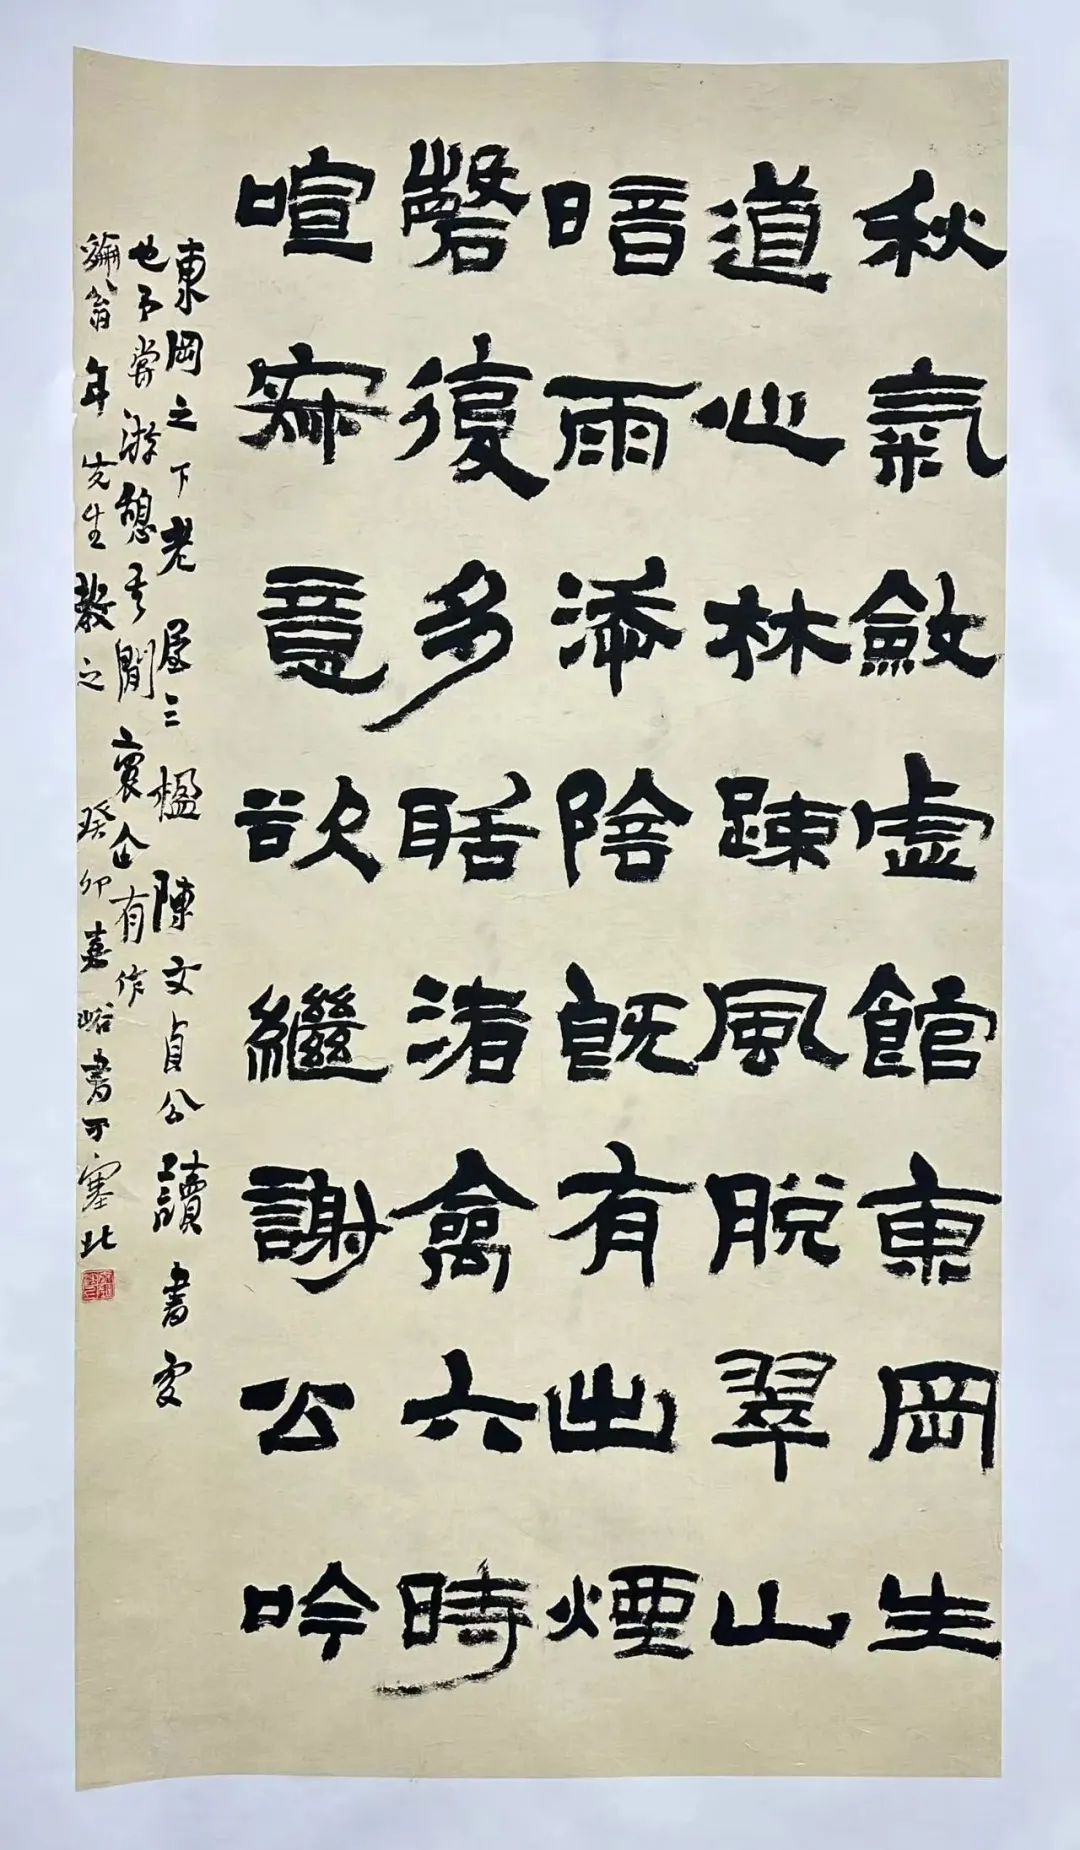 秋氣斂虛館東岡生
道心林踈風脫翠山
暗雨添陰既有出煙
磬復多聒渚禽六時
喧寂意欲繼謝公吟
東岡之下老屋三楹陳文貞公讀書處
也予嘗游憩其間褱企有作
翁年先生教之 癸卯嘉峪書于塞北